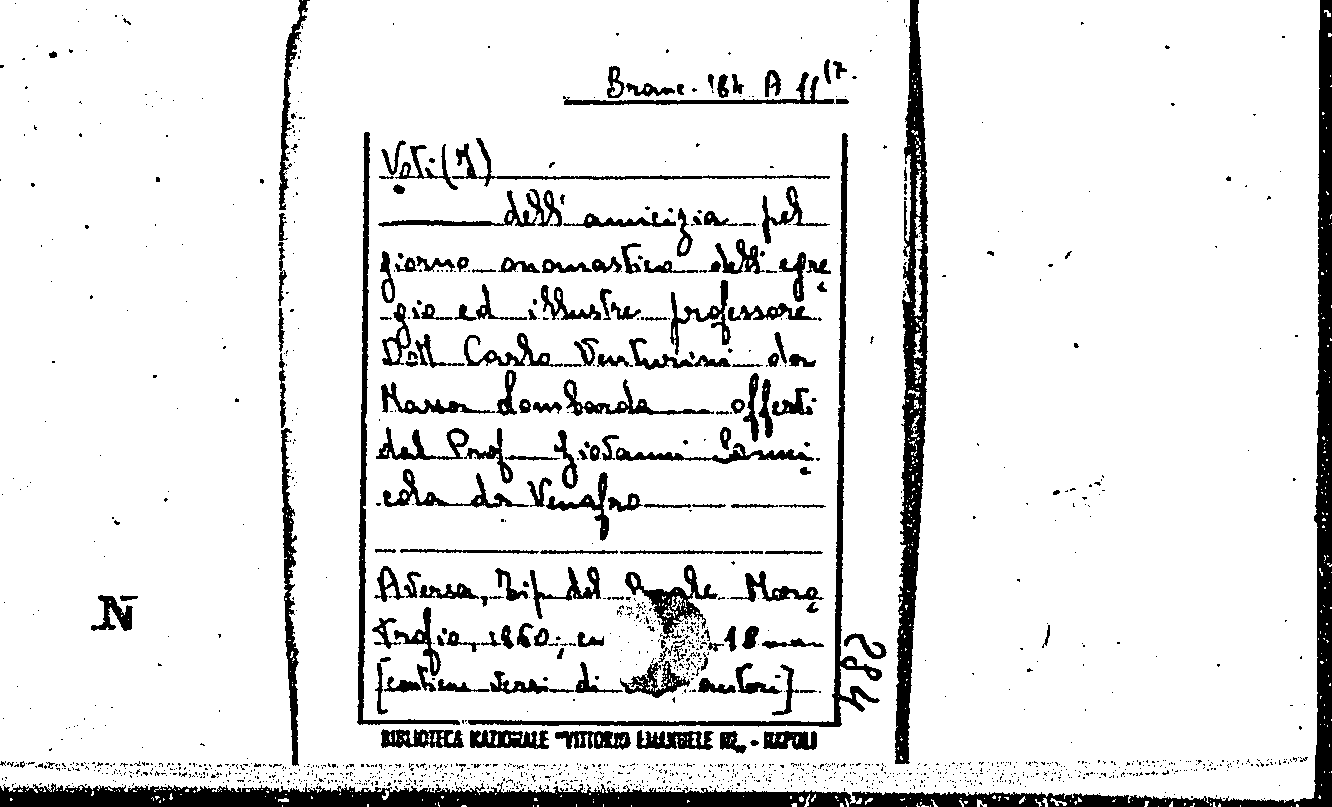 Branc. 184 A 11(7.
Voti (I)
dell'amicizia pel
giorno onomastico dell'egre
gio ed illustre professore
Dott Carlo Venturini da
Massa Lombarda offerti
dal Prof Giovanni
cola da Venafro
Aversa, Tip del Reale Moro
trofio, 1860; 18
[contiene versi di autori]
284
N
BIBLIOTECA NAZIONALE "VITTORIO EMANUELE III„ - NAPOLI